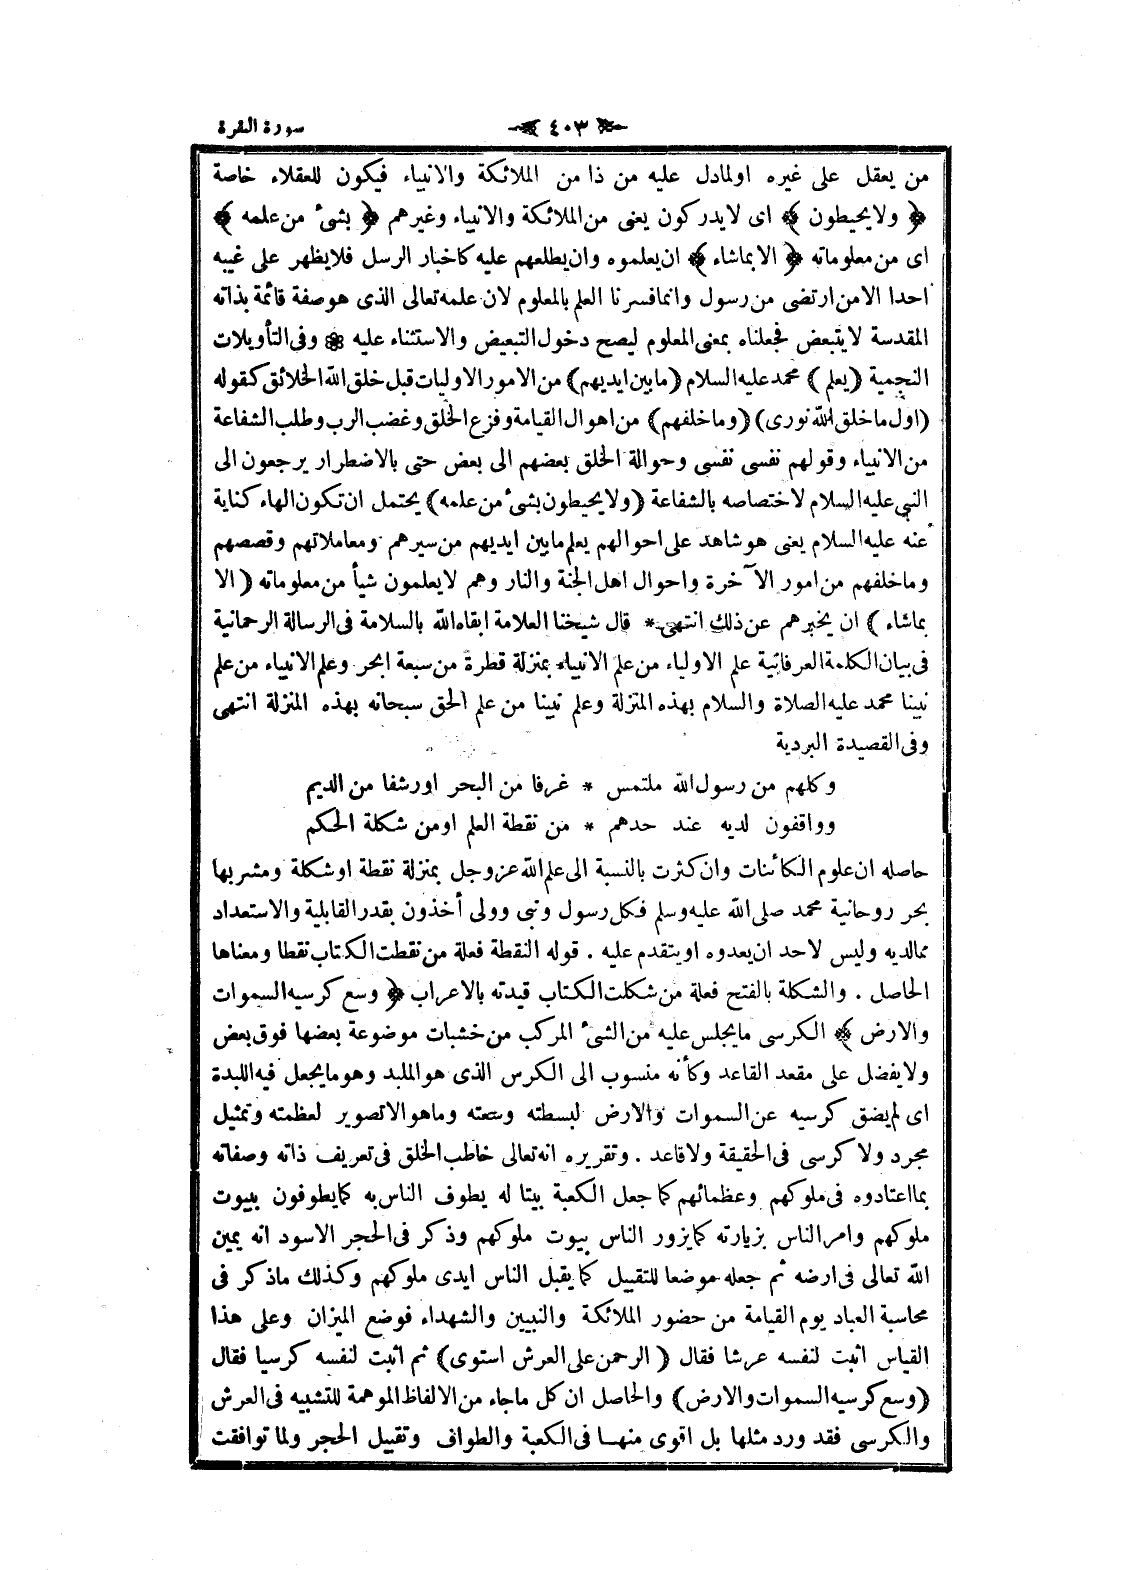 سورة البقرة ﴿ ٤٠٣ ﴾
من يعقل على غيره اولمادل عليه من ذا من الملائكة والانبياء فيكون للعقلاء خاصة
﴿ ولايحيطون ﴾ اى لايدركون يعنى من الملائكة والانبياء وغيرهم ﴿ بشىء من علمه ﴾
اى من معلوماته ﴿ الابماشاء ﴾ ان يعلموه وان يطلعهم عليه كاخبار الرسل فلايظهر على غيبه
احدا الامن ارتضى من رسول وانمافسرنا العلم بالمعلوم لان علمه تعالى الذى هوصفة قائمة بذاته
المقدسة لايتبعض فجعلناه بمعنى المعلوم ليصح دخول التبعيض والاستثناء عليه * وفى التأويلات
النجمية (يعلم) محمد عليه السلام (مابين ايديهم) من الامور الاوليات قبل خلق الله الخلائق كقوله
(اول ماخلق الله نورى) (وماخلفهم) من اهوال القيامة وفزع الخلق وغضب الرب وطلب الشفاعة
من الانبياء وقولهم نفسى نفسى وحوالة الخلق بعضهم الى بعض حتى بالاضطرار يرجعون الى
النبى عليه السلام لاختصاصه بالشفاعة (ولايحيطون بشىء من علمه) يحتمل ان تكون الهاء كناية
عنه عليه السلام يعنى هو شاهد على احوالهم يعلم مابين ايديهم من سيرهم ومعاملاتهم وقصصهم
وماخلفهم من امور الآخرة واحوال اهل الجنة والنار وهم لايعلمون شيأ من معلوماته (الا
بماشاء) ان يخبرهم عن ذلك انتهى * قال شيخنا العلامة ابقاه الله بالسلامة فى الرسالة الرحمانية
فى بيان الكلمة العرفانية علم الاولياء من علم الانبياء بمنزلة قطرة من سبعة ابحر وعلم الانبياء من علم
نبينا محمد عليه الصلاة والسلام بهذه المنزلة وعلم نبينا من علم الحق سبحانه بهذه المنزلة انتهى
وفى القصيدة البردية
وكلهم من رسول الله ملتمس * غرفا من البحر اورشفا من الديم
وواقفون لديه عند حدهم * من نقطة العلم اومن شكلة الحكم
حاصله ان علوم الكائنات وان كثرت بالنسبة الى علم الله عز وجل بمنزلة نقطة اوشكلة ومشربها
بحر روحانية محمد صلى الله عليه وسلم فكل رسول ونبى وولى أخذون بقدر القابلية والاستعداد
ممالديه وليس لاحد ان يعدوه اويتقدم عليه . قوله النقطة فعلة من نقطت الكتاب نقطا ومعناها
الحاصل . والشكلة بالفتح فعلة من شكلت الكتاب قيدته بالاعراب ﴿ وسع كرسيه السموات
والارض ﴾ الكرسى مايجلس عليه من الشىء المركب من خشبات موضوعة بعضها فوق بعض
ولايفضل على مقعد القاعد وكأنه منسوب الى الكرس الذى هو الملبد وهو مايجعل فيه اللبدة
اى لم يضق كرسيه عن السموات والارض لبسطته وسعته وماهو الاتصوير لعظمته وتمثيل
مجرد ولاكرسى فى الحقيقة ولاقاعد . وتقريره انه تعالى خاطب الخلق فى تعريف ذاته وصفاته
بمااعتادوه فى ملوكهم وعظمائهم كما جعل الكعبة بيتا له يطوف الناس به كمايطوفون ببيوت
ملوكهم وامر الناس بزيارته كمايزور الناس بيوت ملوكهم وذكر فى الحجر الاسود انه يمين
الله تعالى فى ارضه ثم جعله موضعا للتقبيل كما يقبل الناس ايدى ملوكهم وكذلك ماذكر فى
محاسبة العباد يوم القيامة من حضور الملائكة والنبيين والشهداء فوضع الميزان وعلى هذا
القياس اثبت لنفسه عرشا فقال (الرحمن على العرش استوى) ثم اثبت لنفسه كرسيا فقال
(وسع كرسيه السموات والارض) والحاصل ان كل ماجاء من الالفاظ الموهمة للتشبيه فى العرش
والكرسى فقد ورد مثلها بل اقوى منها فى الكعبة والطواف وتقبيل الحجر ولما توافقت